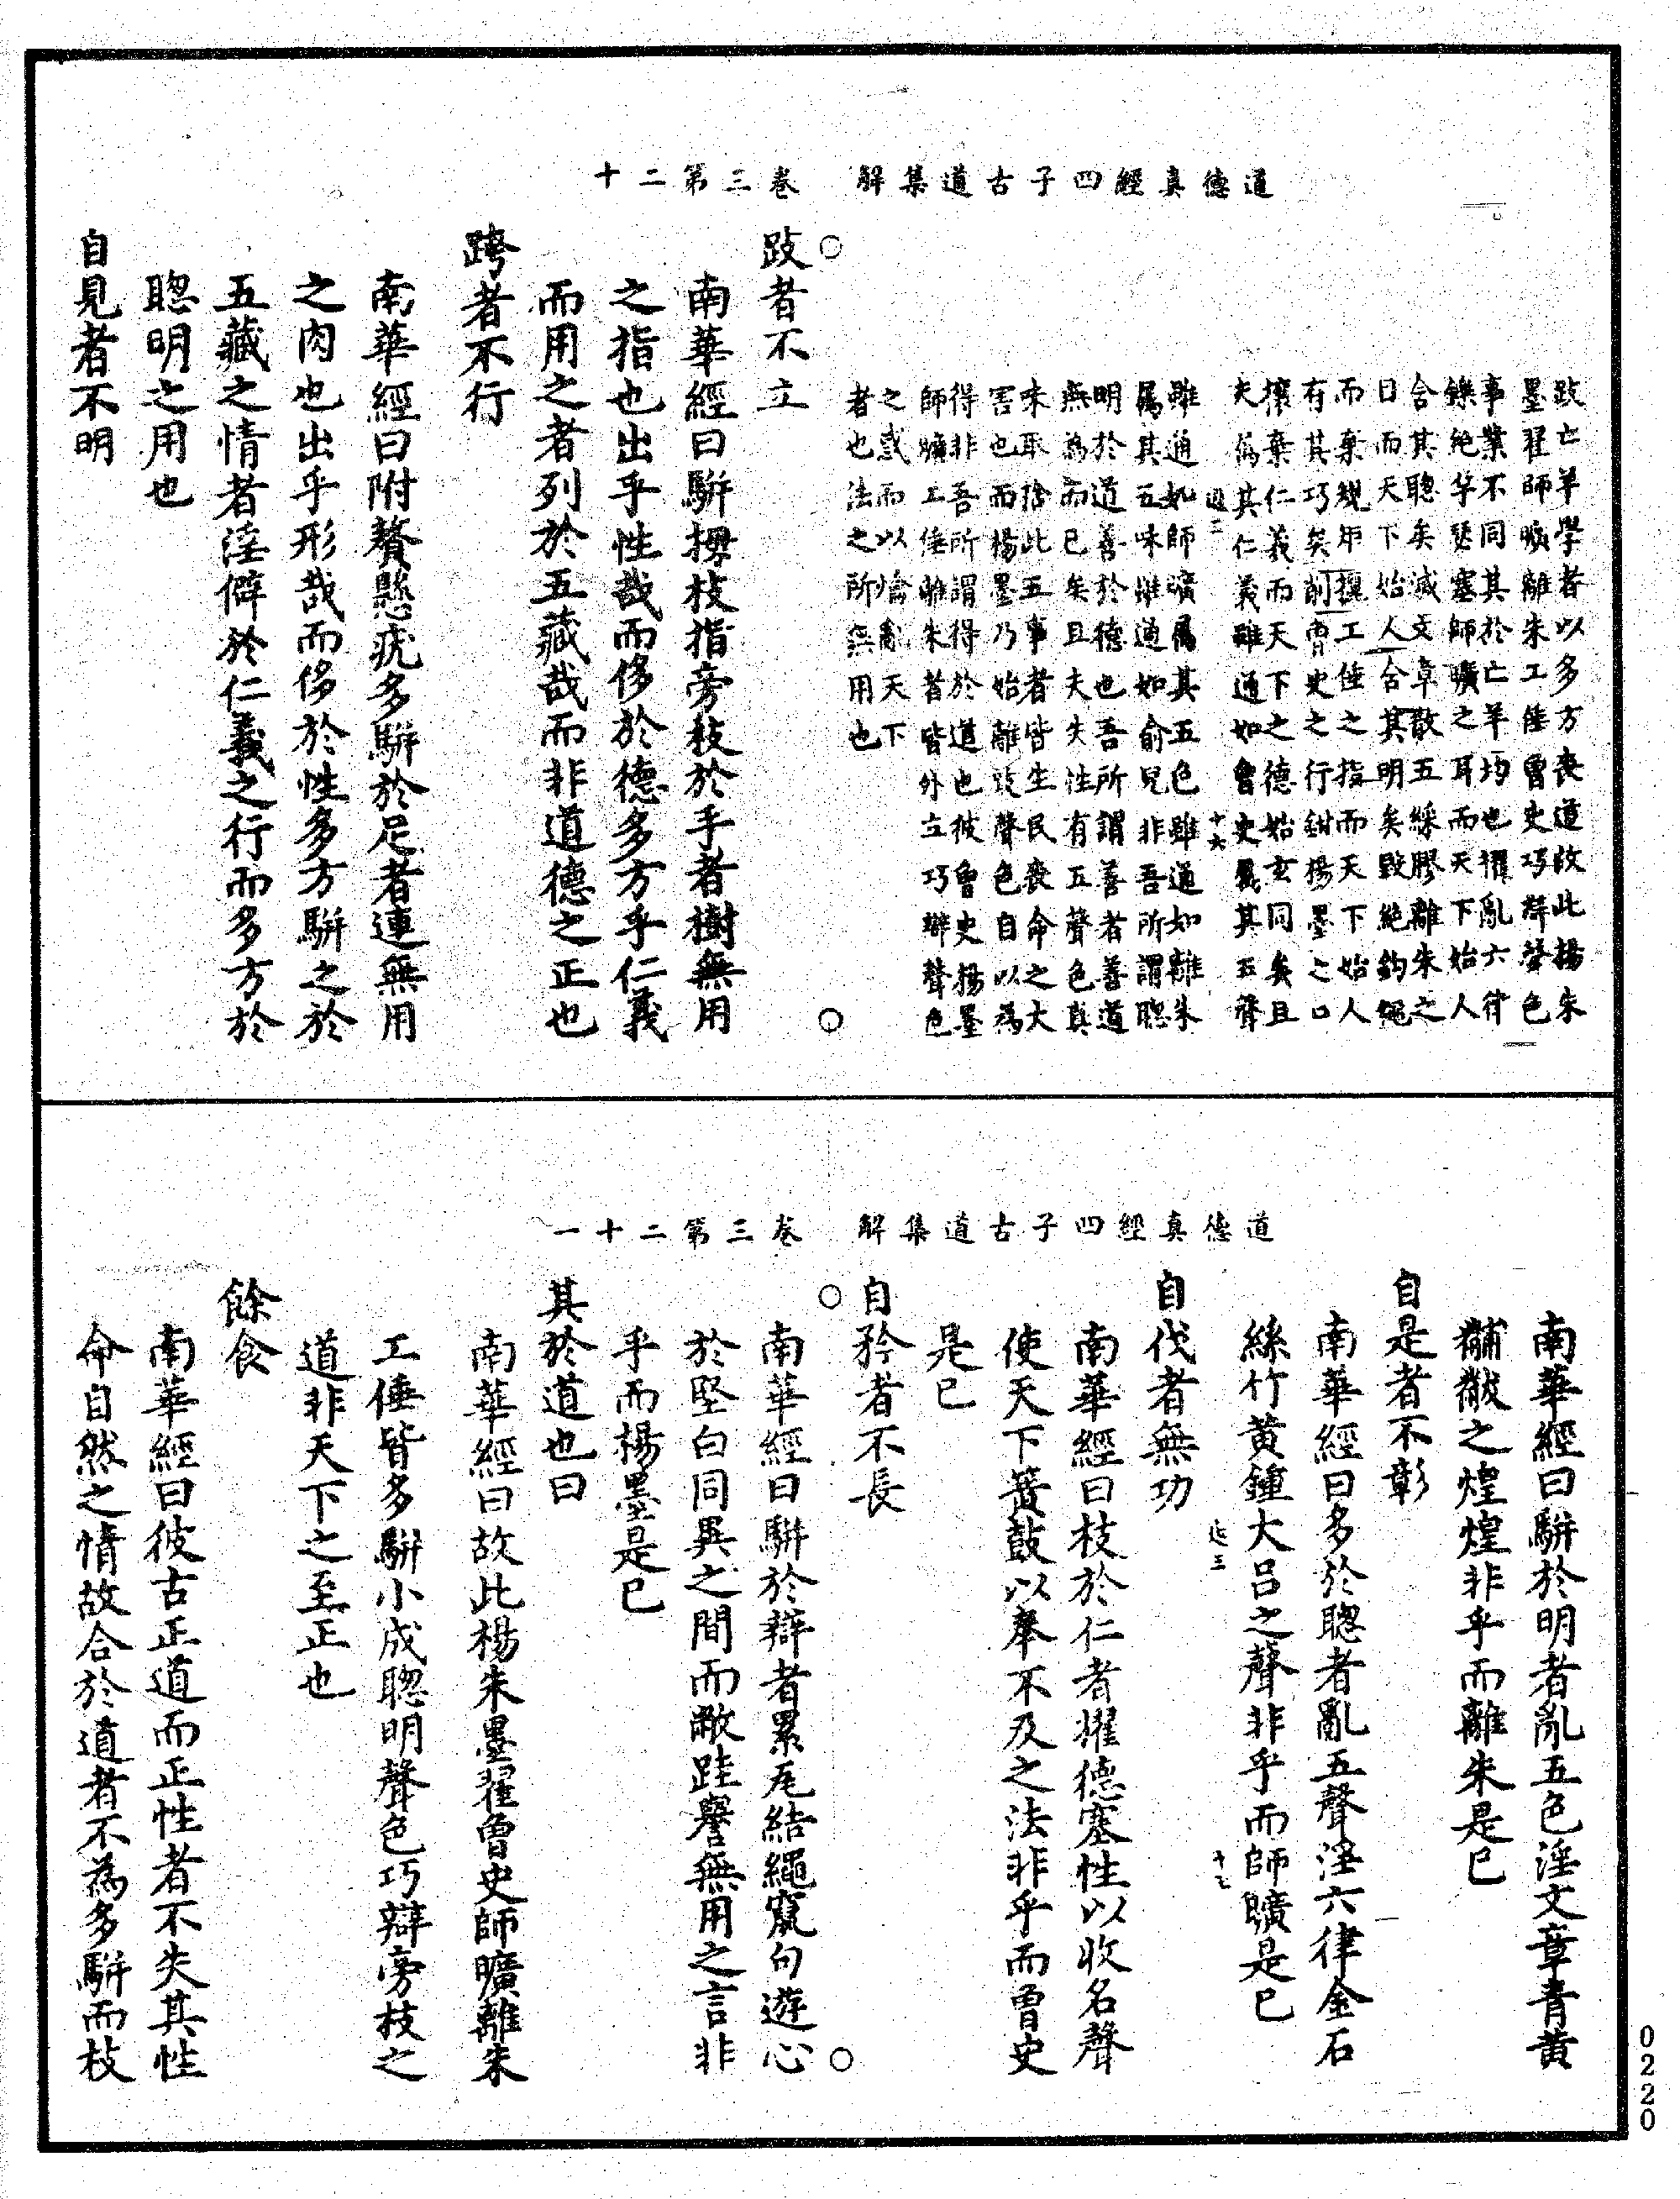 道德真經四子古道集解 卷三第二十
跂亡羊學者以多方喪道故此楊朱
墨翟師曠離朱工倕曾史巧辯聲色
事業不同其於亡羊均也擢亂六律
鑠絕竽瑟塞師曠之耳而天下始人
含其聰矣滅文章散五綵膠離朱之
目而天下始人含其明矣毀絕鈎繩
而棄規矩攦工倕之指而天下始人
有其巧矣削曾史之行鉗楊墨之口
攘棄仁義而天下之德始玄同矣且
夫屬其仁義雖通如曾史屬其五聲
十六
雖通如師曠屬其五色雖通如離朱
屬其五味雖通如俞兒非吾所謂聰
明於道善於德也吾所謂善者善道
無為而已矣且夫失性有五聲色真
味取捨此五事者皆生民喪命之大
害也而楊墨乃始離跂聲色自以為
得非吾所謂得於道也彼曾史楊墨
師曠工倕離朱者皆外立巧辯聲色
之惑而以爚亂天下
者也法之所無用也
跂者不立
南華經曰駢拇枝指旁枝於手者樹無用
之指也出乎性哉而侈於德多方乎仁義
而用之者列於五藏哉而非道德之正也
跨者不行
南華經曰附贅懸疣多駢於足者連無用
之肉也出乎形哉而侈於性多方駢之於
五藏之情者淫僻於仁義之行而多方於
聰明之用也
自見者不明
道德真經四子古道集解 卷三第二十一
南華經曰駢於明者亂五色淫文章青黃
黼黻之煌煌非乎而離朱是已
自是者不彰
南華經曰多於聰者亂五聲淫六律金石
絲竹黃鍾大呂之聲非乎而師曠是已
十七
自伐者無功
南華經曰枝於仁者擢德塞性以收名聲
使天下簧鼓以奉不及之法非乎而曾史
是已
自矜者不長
南華經曰駢於辯者累瓦結繩竄句遊心
於堅白同異之間而敝跬譽無用之言非
乎而楊墨是已
其於道也曰
南華經曰故此楊朱墨翟曾史師曠離朱
工倕皆多駢小成聰明聲色巧辯旁枝之
道非天下之至正也
餘食
南華經曰彼古正道而正性者不失其性
命自然之情故合於道者不為多駢而枝
0220